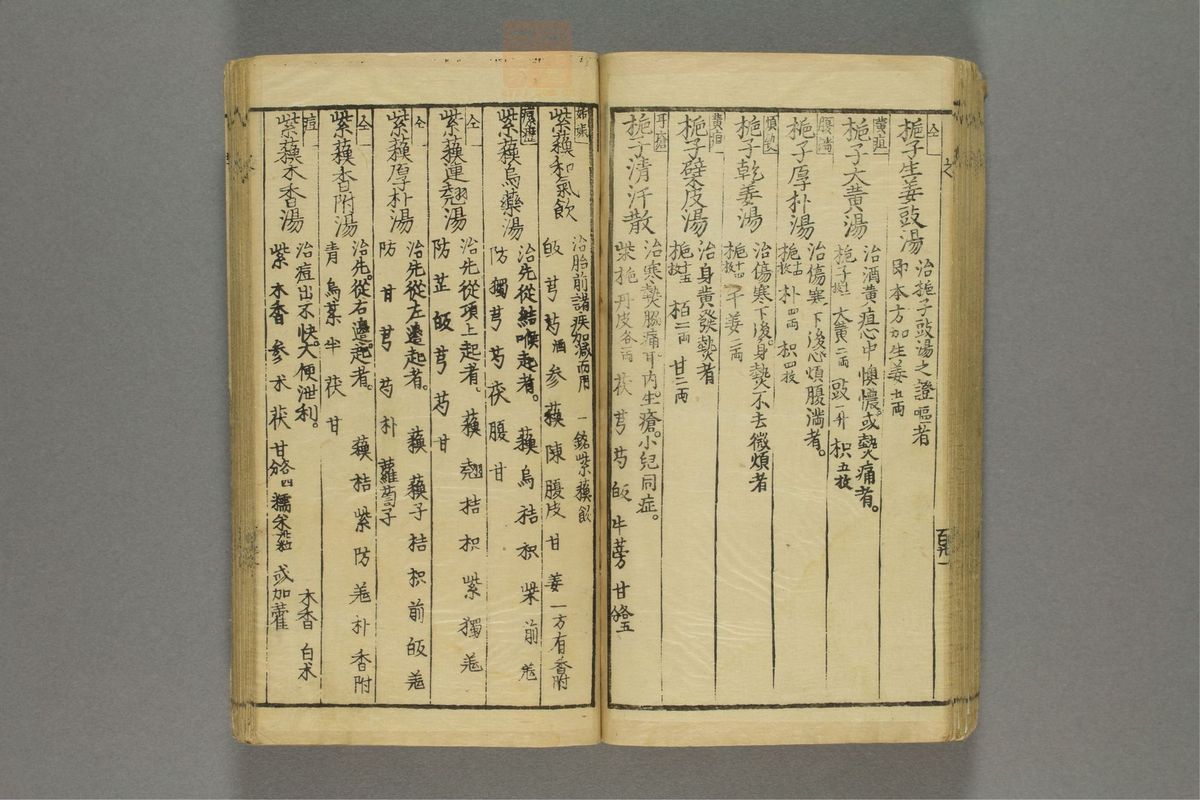 仝
梔子生姜豉湯
治梔子豉湯之證嘔者
即本方加生姜五両
黄疸
梔子大黄湯
治酒黄疸心中懊憹或熱痛者。
大黄二両 豉一升 枳五枚
腹満
梔子厚朴湯
治傷寒下後心煩腹満者。
朴四両 枳四枚
梔子乾姜湯
治傷寒下後。身熱不去微煩者
干姜二両
黄疸
梔子檗皮湯
治身黄發熱者
柏二両 甘二両
耳瘡
梔子清汗散
治寒熱脇痛耳内生瘡。小兒同症。
柴 梔 丹皮各両 茯 芎 芍 皈 牛蒡 甘各五分
百九十一
紫蘓和氣飲
治胎前諸疾加减而用 一銘紫蘓飲
皈 芎 芍酒 参 蘓 陳 腹皮 甘 姜 一方有香附
紫蘓烏藥湯
治先從結喉起者。 蘓 烏 桔 枳 柴 前 羌
防 獨 芎 芍 茯 腹 甘
仝
紫蘓連翹湯
治先從項上起者。 蘓 翹 桔 枳 紫 獨 羌
防 芷 皈 芎 芍 甘
仝
紫蘓厚朴湯
治先從左邉起者。 蘓 蘓子 桔 枳 前 皈 羌
防 甘 芎 芍 朴 蘿蔔子
仝
紫蘓香附湯
治先。從右邉起者。 蘓 桔 紫 防 羌 朴 香附
青 烏 茱 半 茯 甘
痘
紫蘓木香湯
治痘出不快。大便泄利。 木香 白朮
紫 木香 参 朮 茯 甘各四分 糯米 或加藿